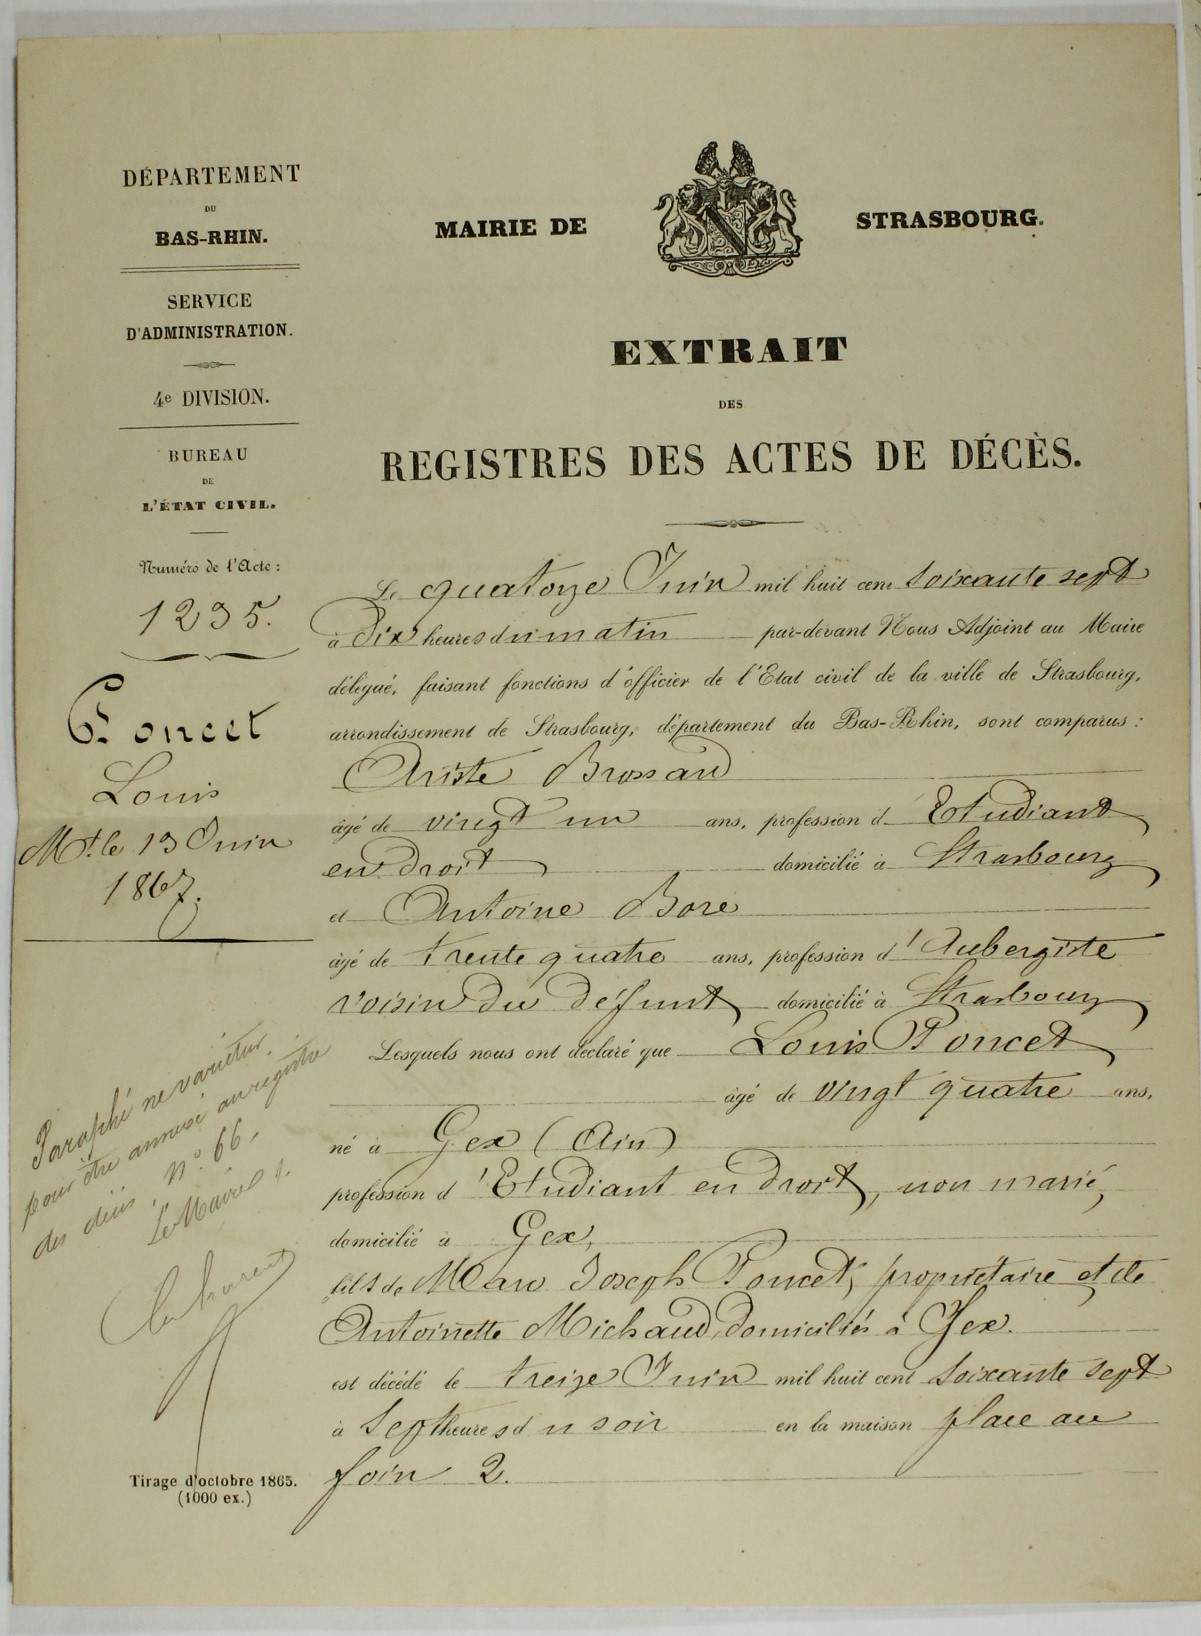 DÉPARTEMENT
DU
BAS-RHIN.
SERVICE
D'ADMINISTRATION.
4e DIVISION.
BUREAU
DE
L'ÉTAT CIVIL.
Numéro de l'Acte :
1235.
Poncet
Louis
Mt. le 13 Juin
1867.
Paraphé ne varietur
pour être annexé au registre
des décès N° 66,
Le Maire
Tirage d'octobre 1865.
(1000 ex.)
MAIRIE DE STRASBOURG.
EXTRAIT
DES
REGISTRES DES ACTES DE DÉCÈS.
Le quatorze Juin mil huit cent soixante sept
à Dix heures du matin par-devant Nous Adjoint au Maire
délégué, faisant fonctions d'officier de l'Etat civil de la ville de Strasbourg,
arrondissement de Strasbourg, département du Bas-Rhin, sont comparus :
Ariste Brossard
âgé de vingt un ans, profession d Etudiant
en Droit domicilié à Strasbourg
et Antoine Bore
âgé de trente quatre ans, profession d'Aubergiste
voisin du défunt domicilié à Strasbourg
Lesquels nous ont déclaré que Louis Poncet
âgé de vingt quatre ans,
né à Gex (Ain)
profession d'Etudiant en droit, non marié,
domicilié à Gex,
fils de Marc Joseph Poncet, propriétaire et de
Antoinette Michaud, domiciliés à Gex.
est décédé le treize Juin mil huit cent soixante sept
à Sept heures du soir en la maison place au
foin 2.